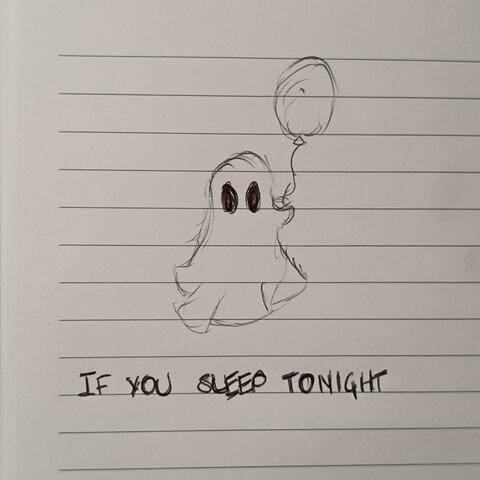 IF YOU SLEEP TONIGHT